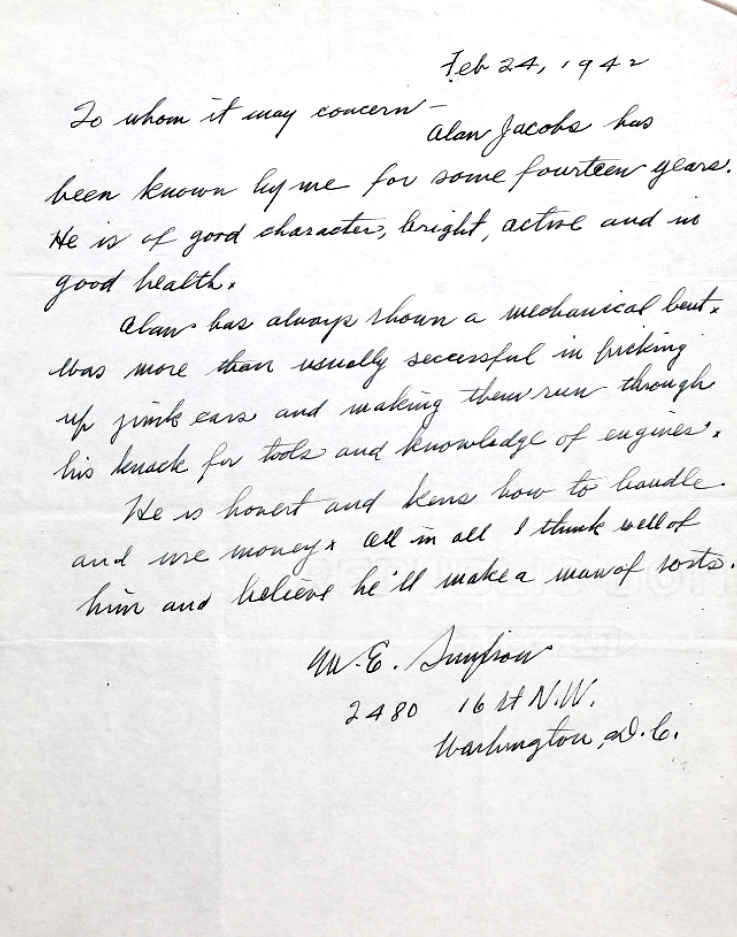 Feb 24, 1942
To whom it may concern –
Alan Jacobs has
been known by me for some fourteen years.
He is of good character, bright, active and in
good health.
Alan has always shown a mechanical bent.
Was more than usually successful in picking
up junk cars and making them run through
his knack for tools and knowledge of engines.
He is honest and kens how to handle
and use money. All in all I think well of
him and believe he'll make a man of sorts.
M. E. Simpson
2480 16 St N.W.
Washington, D.C.